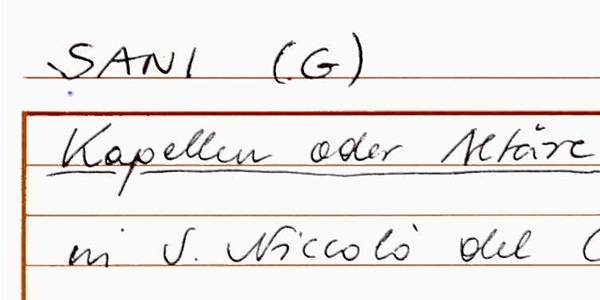 SANI (G)
Kapellen oder Altäre
in S. Niccolò del